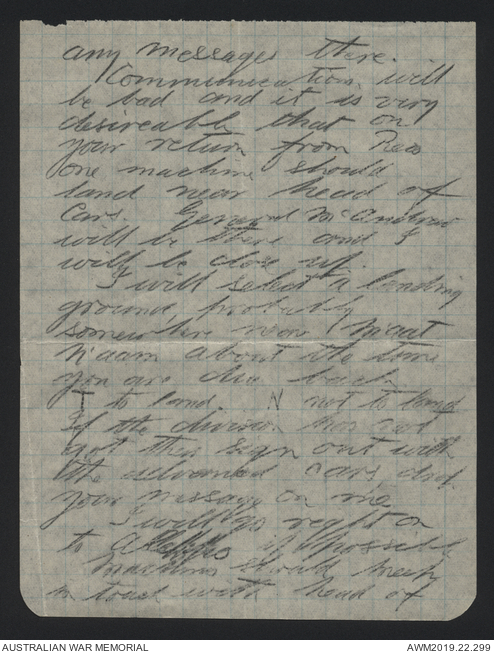 any messages there.
Communication will
be bad and it is very
desireable that on
your return from Reco
one machine should
land near head of
Cars. General McAndrew
will be there and I
will be close up.
I will select a landing
ground, probably
somewhere near Maat
Naam about the time
you are due back
T to land N not to land
If the division has not
got this sign out with
the advanced cars drop
your message on me
I will go right on
to Aleppo if possible
Machines should keep
in touch with head of
AUSTRALIAN WAR MEMORIAL
AWM2019.22.299